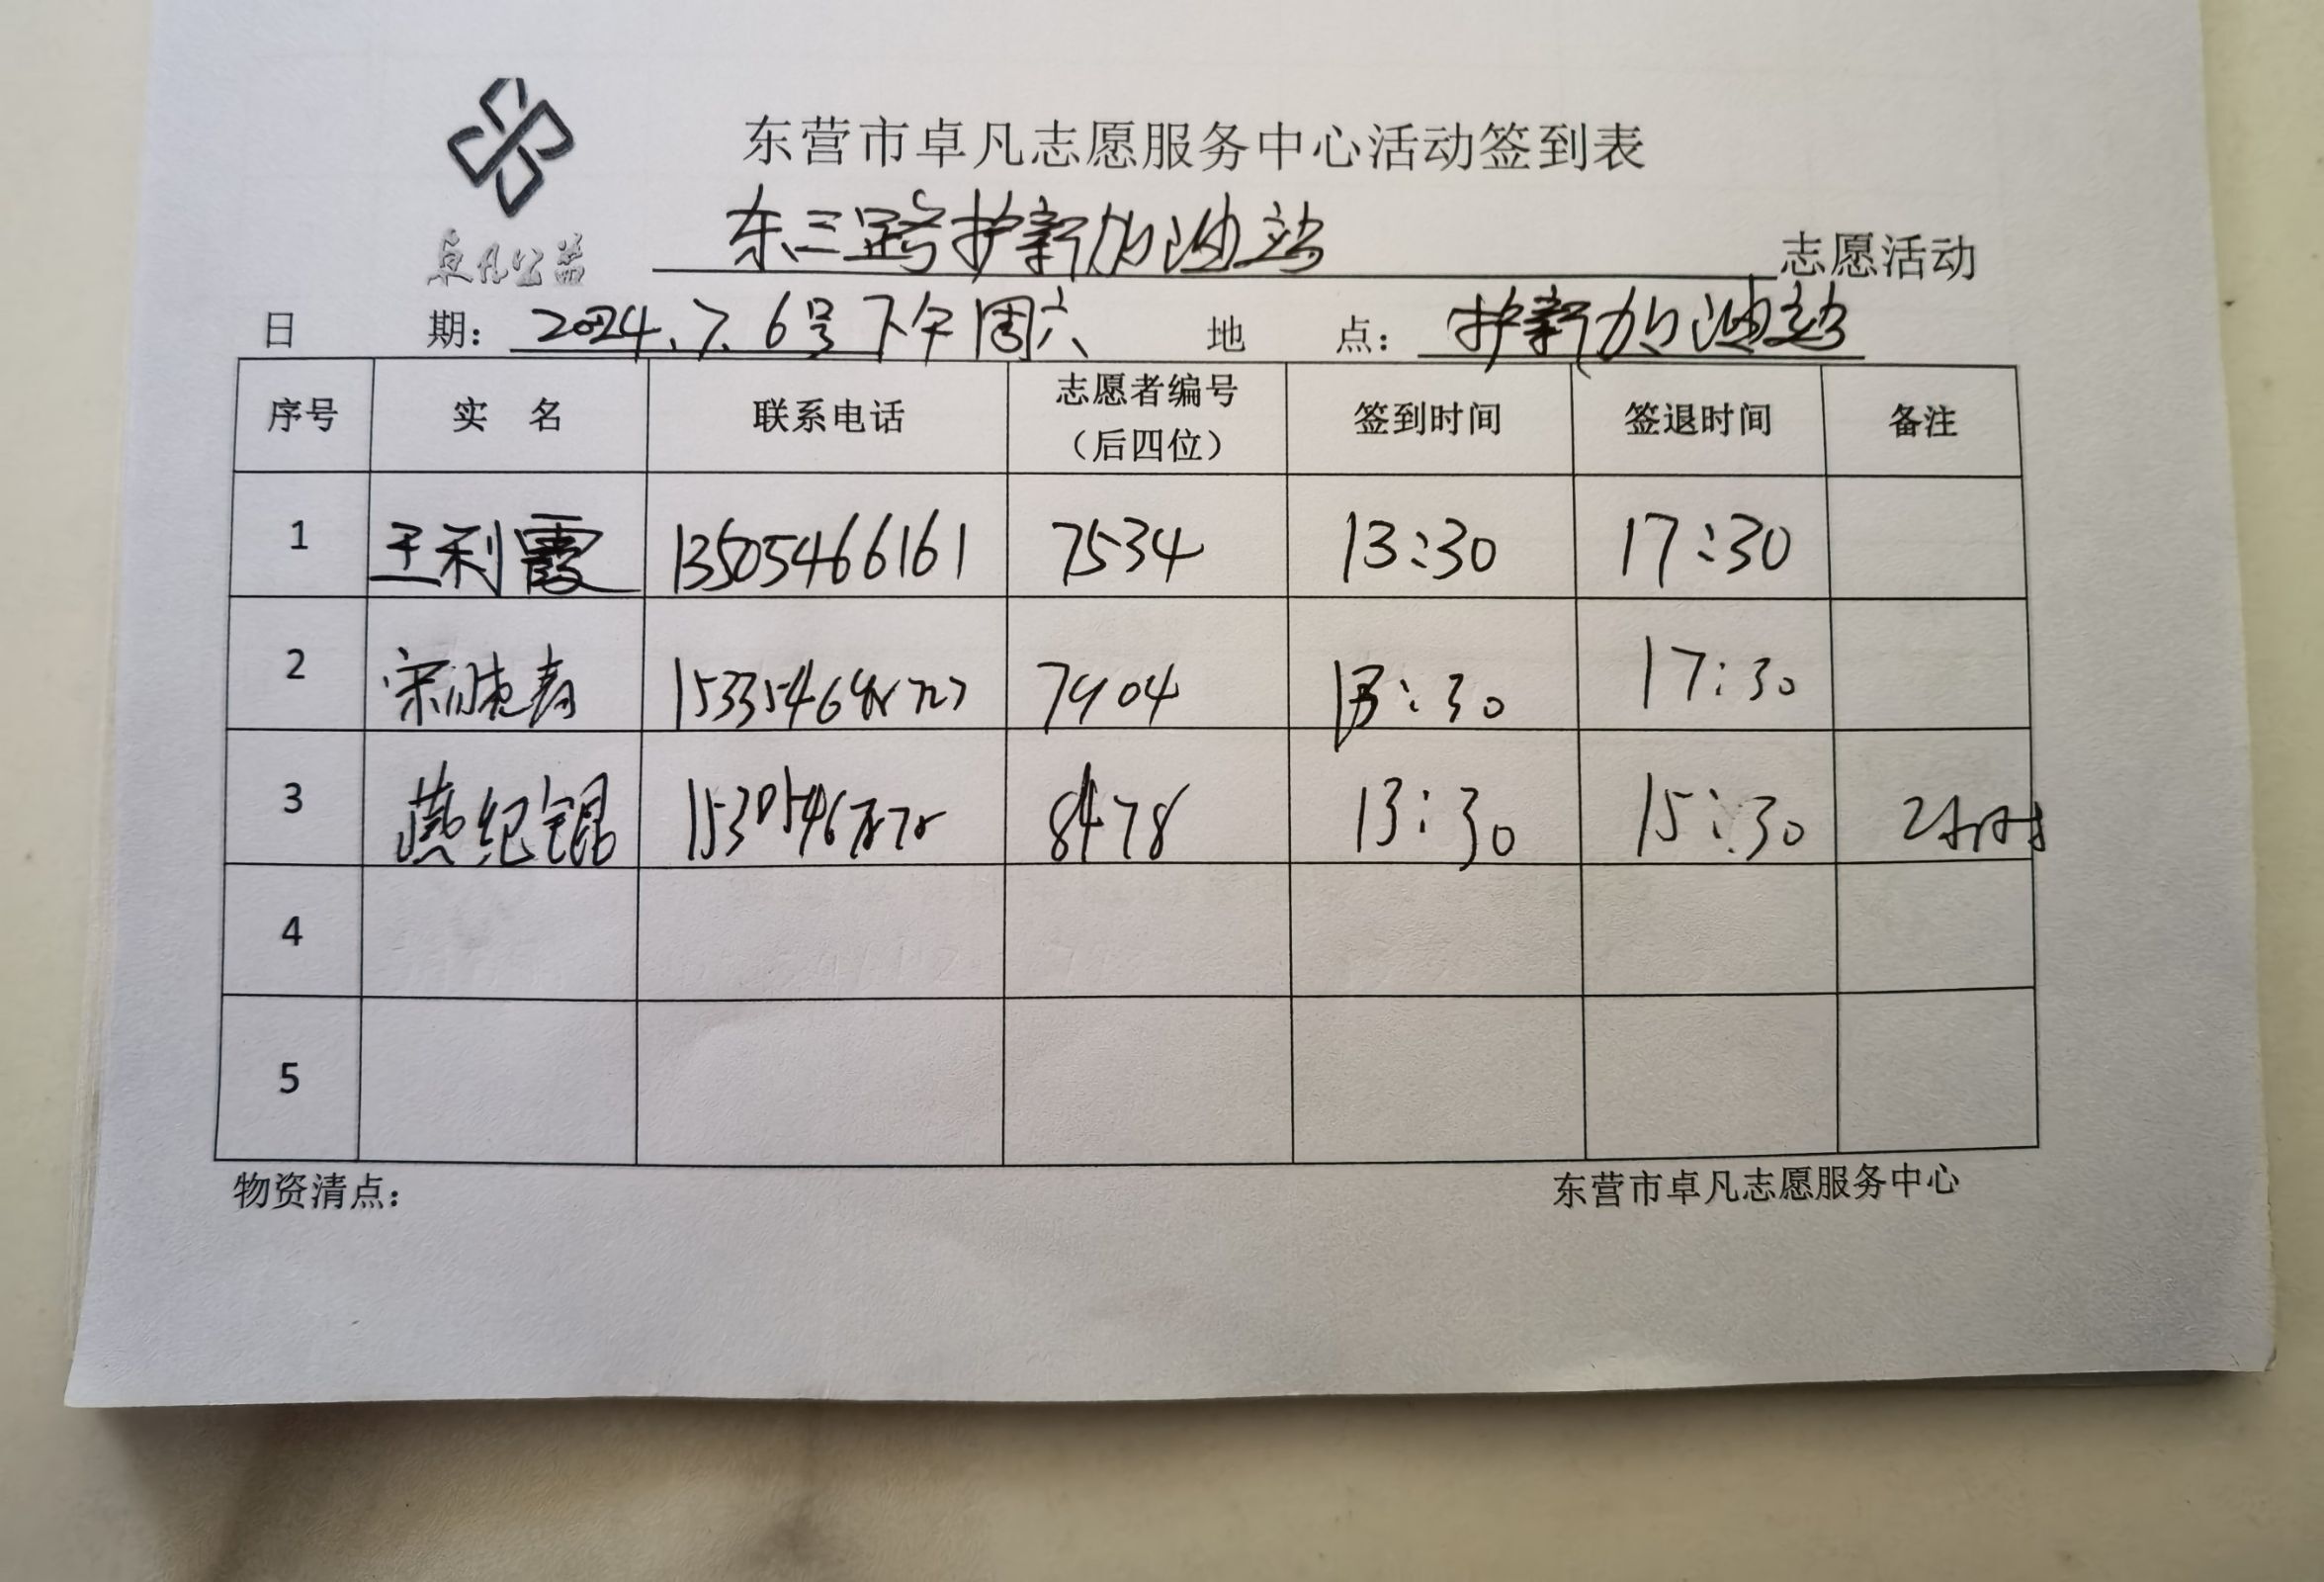 东营市卓凡志愿服务中心活动签到表
卓凡公益
东三路护新加油站 志愿活动
日 期：2024.7.6号下午周六 地 点：护新加油站
序号 实 名 联系电话 志愿者编号（后四位） 签到时间 签退时间 备注
1 王利霞 13505466161 7534 13:30 17:30
2 宋晓春 7904 13:30 17:30
3 燕纪锟 8478 13:30 15:30 2小时
4
5
物资清点： 东营市卓凡志愿服务中心